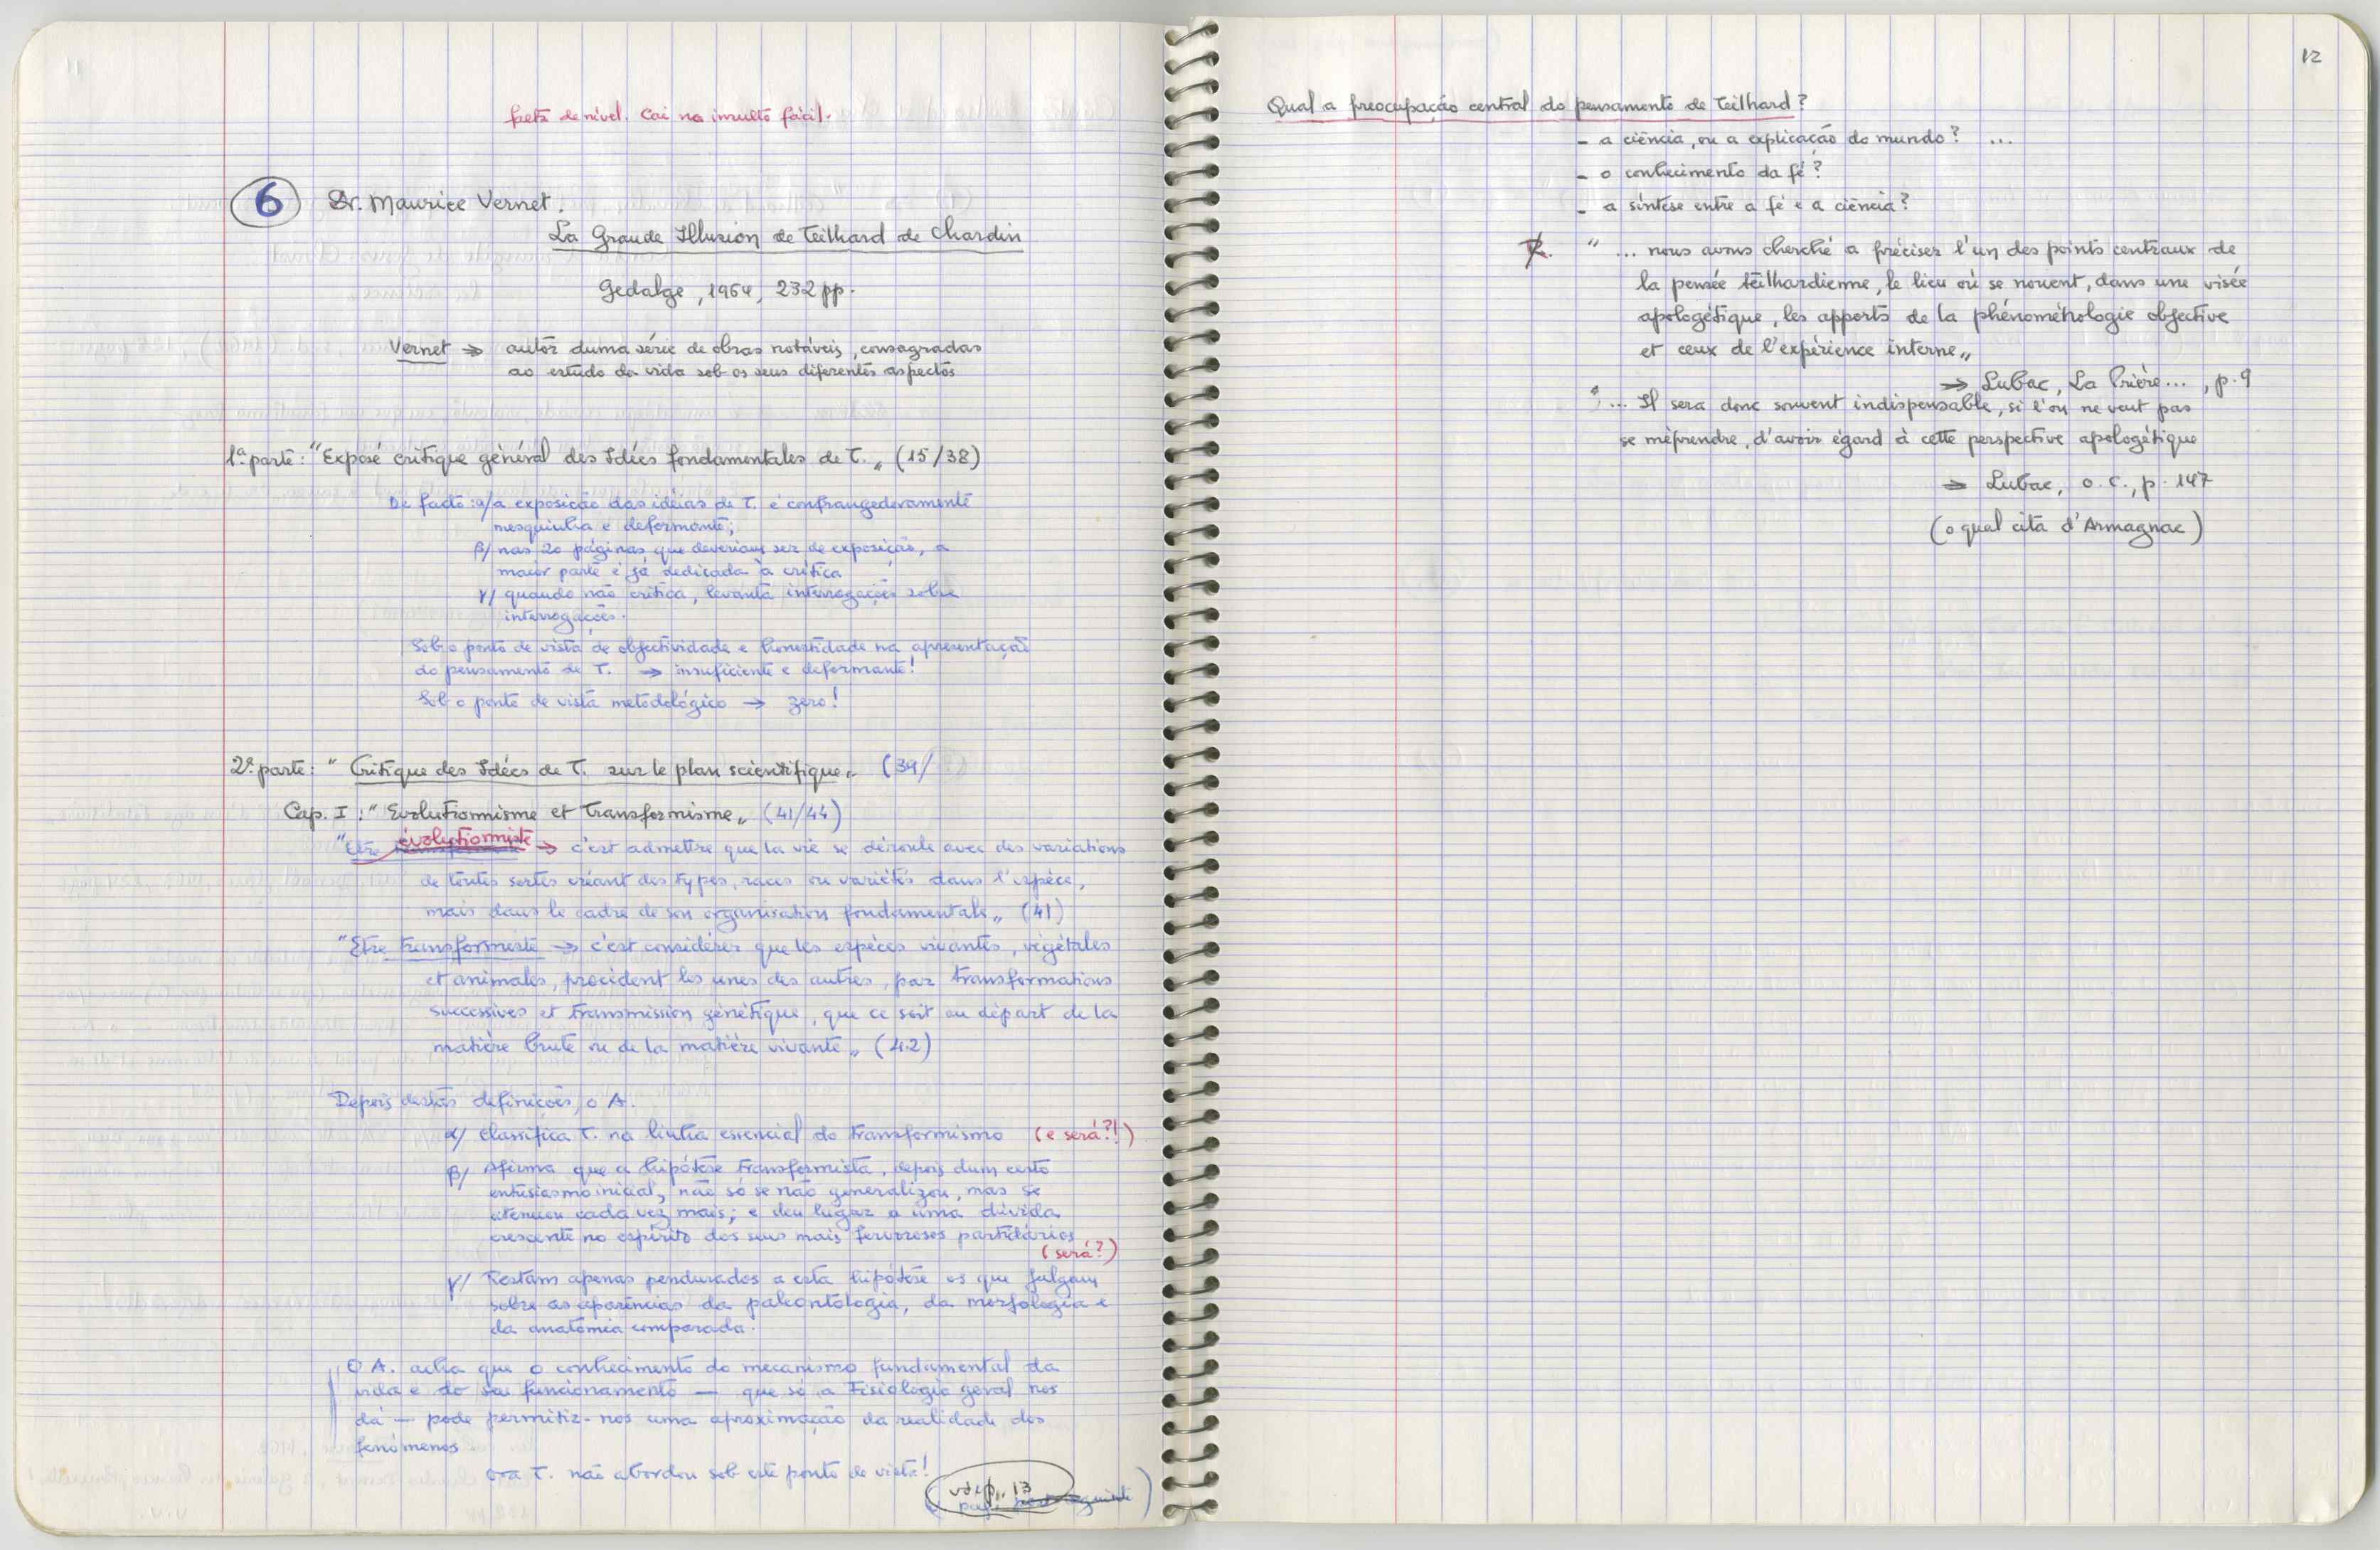 falta de nível. Cai no insulto fácil.
6 Dr. Maurice Vernet.
La Grande Illusion de Teilhard de Chardin
Gedalge, 1964, 232 pp.
Vernet → autor duma série de obras notáveis, consagradas
ao estudo da vida sob os seus diferentes aspectos
1ª parte: "Exposé critique général des Idées fondamentales de T.„ (15/38)
De facto: α/ a exposição das idéias de T. é confrangedoramente
mesquinha e deformante;
β/ nas 20 páginas, que deveriam ser de exposição, a
maior parte é já dedicada à crítica
γ/ quando não critica, levanta interrogações sobre
interrogações.
Sob o ponto de vista de objectividade e honestidade na apresentação
do pensamento de T. → insuficiente e deformante!
Sob o ponto de vista metodológico → zero!
2ª parte: "Critique des Idées de T. sur le plan scientifique„ (39/
Cap. I: "Evolutionnisme et Transformisme„ (41/44)
"Etre évolutionniste → c'est admettre que la vie se déroule avec des variations
de toutes sortes créant des types, races ou variétés dans l'espèce,
mais dans le cadre de son organisation fondamentale„ (41)
"Etre transformiste → c'est considérer que les espèces vivantes, végétales
et animales, procèdent les unes des autres, par transformations
successives et transmission génétique, que ce soit au départ de la
matière brute ou de la matière vivante„ (42)
Depois destas definições, o A.
α/ classifica T. na linha essencial do transformismo (e será?!)
β/ Afirma que a hipótese transformista, depois dum certo
entusiasmo inicial, não só se não generalizou, mas se
atenuou cada vez mais; e deu lugar a uma dúvida
crescente no espírito dos seus mais fervorosos partidários
(será?)
γ/ Restam apenas pendurados a esta hipótese os que julgam
sobre as aparências da paleontologia, da morfologia e
da anatomia comparada.
O A. acha que o conhecimento do mecanismo fundamental da
vida e do seu funcionamento — que só a Fisiologia geral nos
dá — pode permitir-nos uma aproximação da realidade dos
fenómenos
Ora T. não abordou sob este ponto de vista!
vd. p. 13
12
Qual a preocupação central do pensamento de Teilhard?
- a ciência, ou a explicação do mundo? ...
- o conhecimento da fé?
- a síntese entre a fé e a ciência?
R. "... nous avons cherché a préciser l'un des points centraux de
la pensée teilhardienne, le lieu où se nouent, dans une visée
apologétique, les apports de la phénoménologie objective
et ceux de l'expérience interne„
→ Lubac, La Prière..., p. 9
"... Il sera donc souvent indispensable, si l'on ne veut pas
se méprendre, d'avoir égard à cette perspective apologétique
→ Lubac, o.c., p. 147
(o qual cita d'Armagnac)